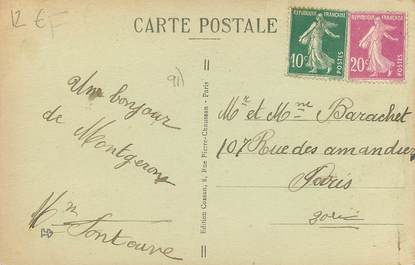 12 €
CARTE POSTALE
91)
REPUBLIQUE FRANÇAISE
10c
POSTES
REPUBLIQUE FRANÇAISE
20c
POSTES
Un bonjour
de Montgeron
Edition Cossan, 8, Rue Pierre-Chausson - Paris
Mr et Mme Barachet
107 Rue des amandiers
Paris